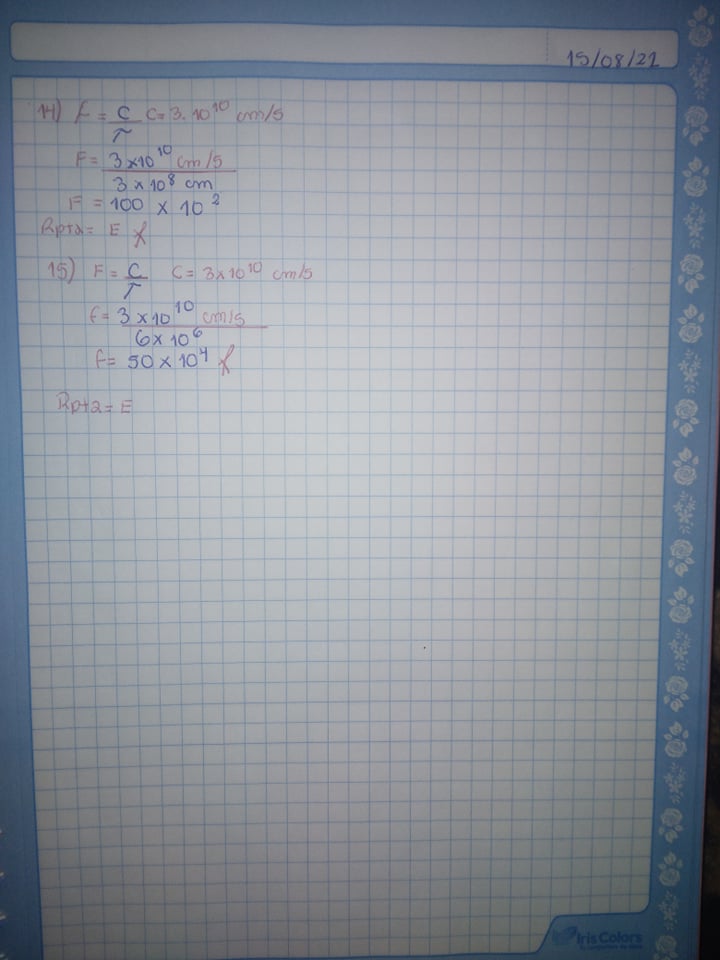 15/08/21
14) f = C/T C= 3. 10¹⁰ cm/s
F= 3 x 10¹⁰ cm/s
3 x 10⁸ cm
F = 100 x 10²
Rpta= E
15) F = C/T C= 3x10¹⁰ cm/s
f= 3 x 10¹⁰ cm/s
6x 10⁶
f= 50 x 10⁴
Rpta= E
Iris Colors